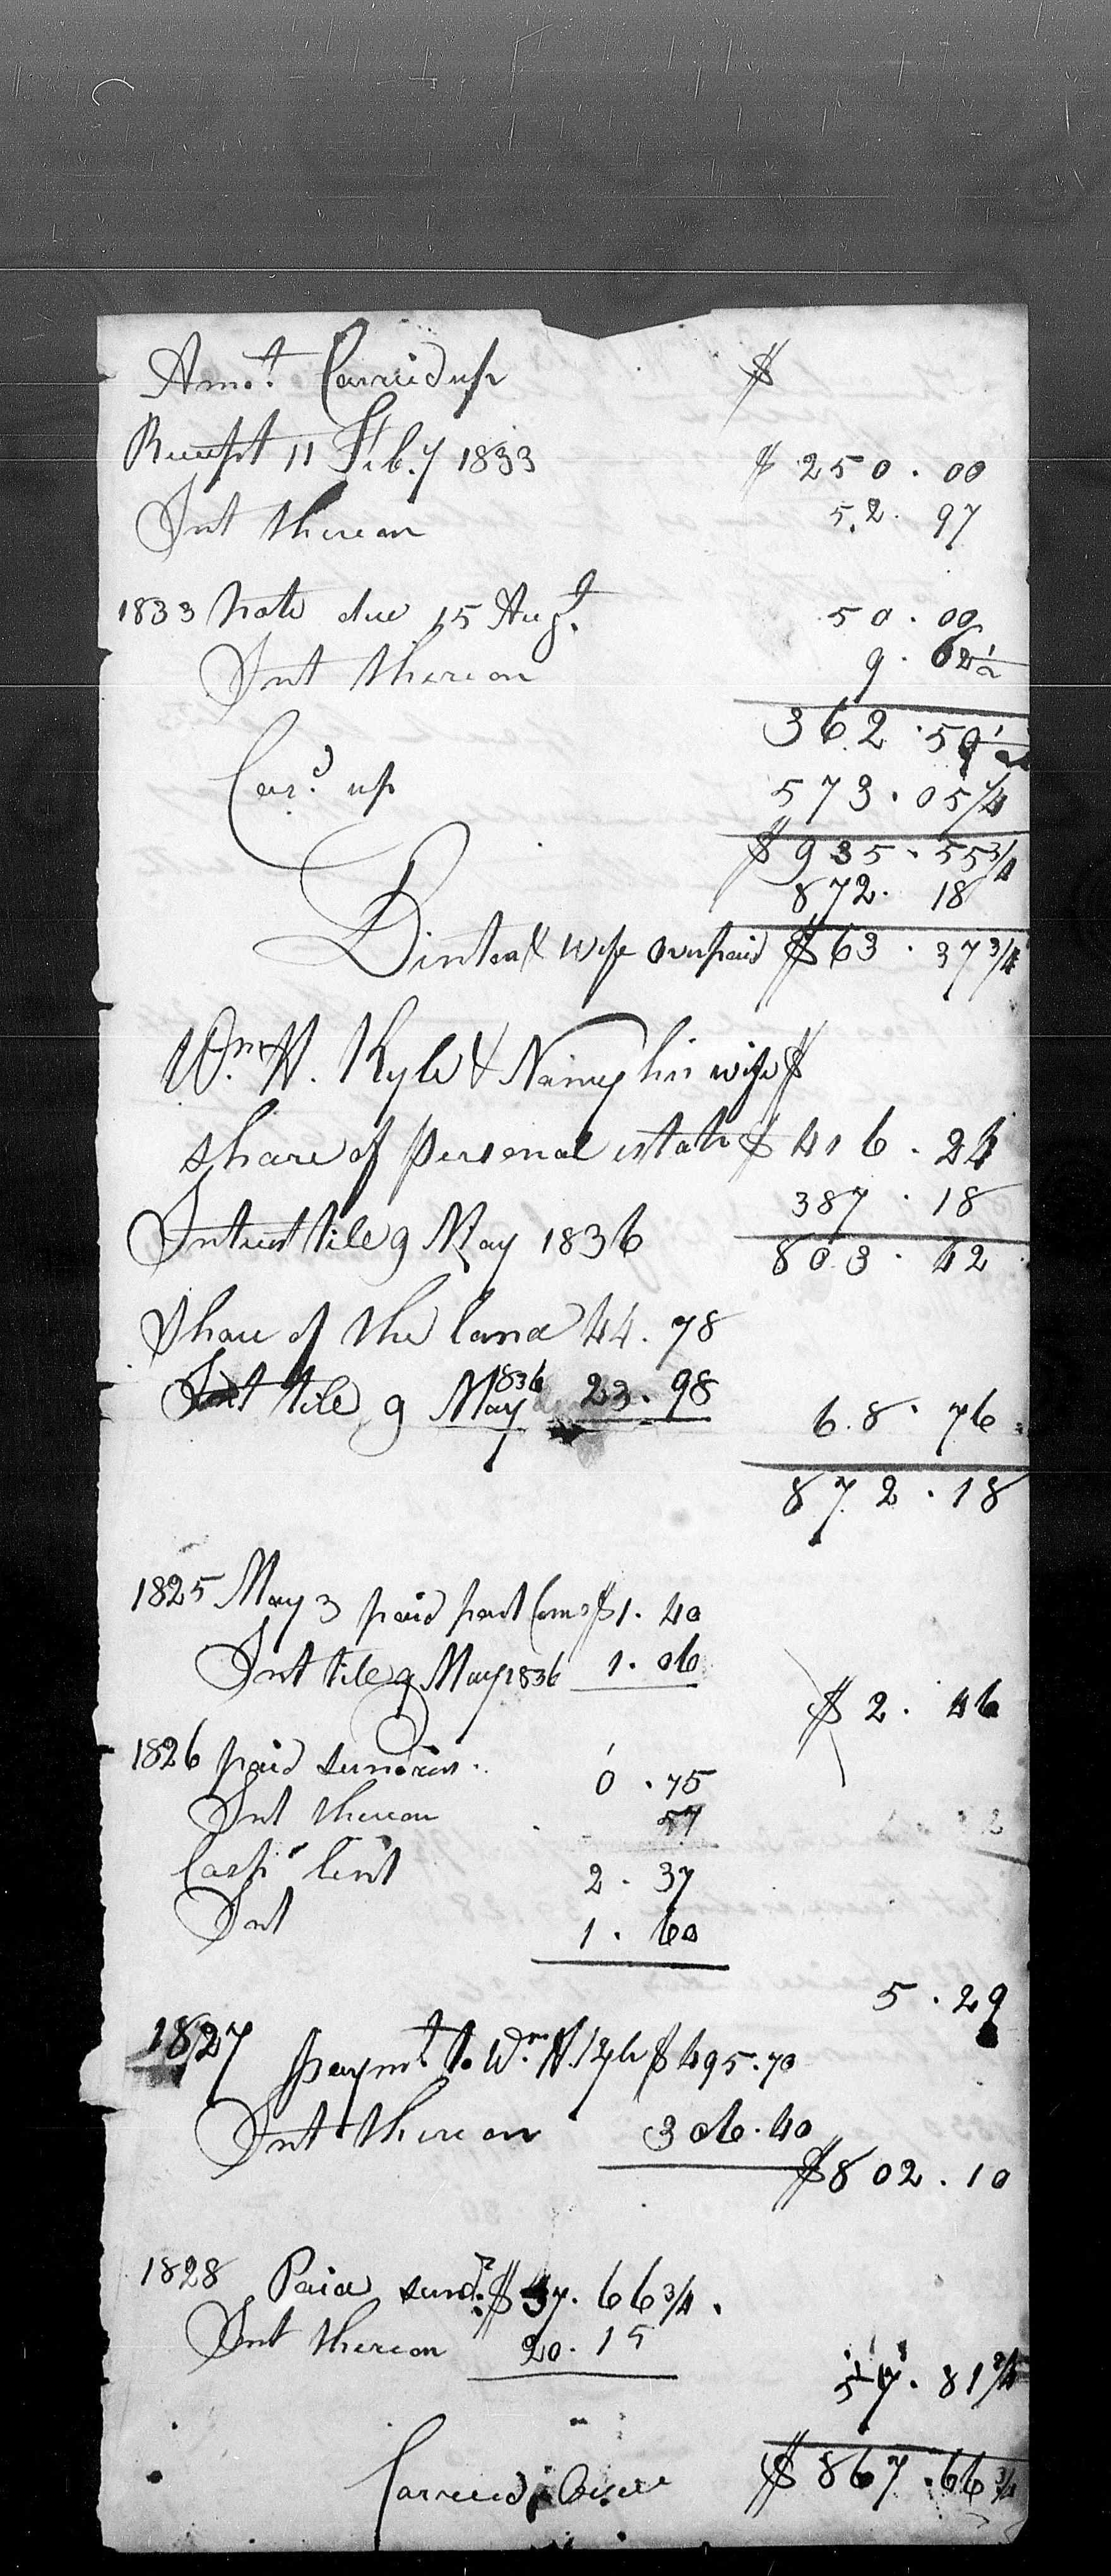 Amo.t Carried up $
Receipt 11 Feb.y 1833 $ 250.00
Int thereon 52.97
1833 note due 15 Aug.t 50.00
Int thereon 9.62½
362.59½
Car.d up 573.05¼
$ 935.55¾
872.18
& wife overpaid $ 63.37¾
Wm. H. Kyle & Nancy his wife $
share of personal estate $ 416.24
Interest till 9 May 1836 387.18
803.42
Share of the land 44.78
Int till 9 May 1836 23.98
68.76
872.18
1825 May 3 paid part $1.40
Int till 9 May 1836 1.06
$ 2.46
1826 paid sundries 0.75
Int thereon 57
Cash lent 2.37
Int 1.60
5.29
1827 paym.t to Wm. H. Kyle $ 495.70
Int thereon 306.40
$ 802.10
1828 Paid sund.s $ 37.66¾
Int thereon 20.15
57.81¾
Carried Over $ 867.66¾